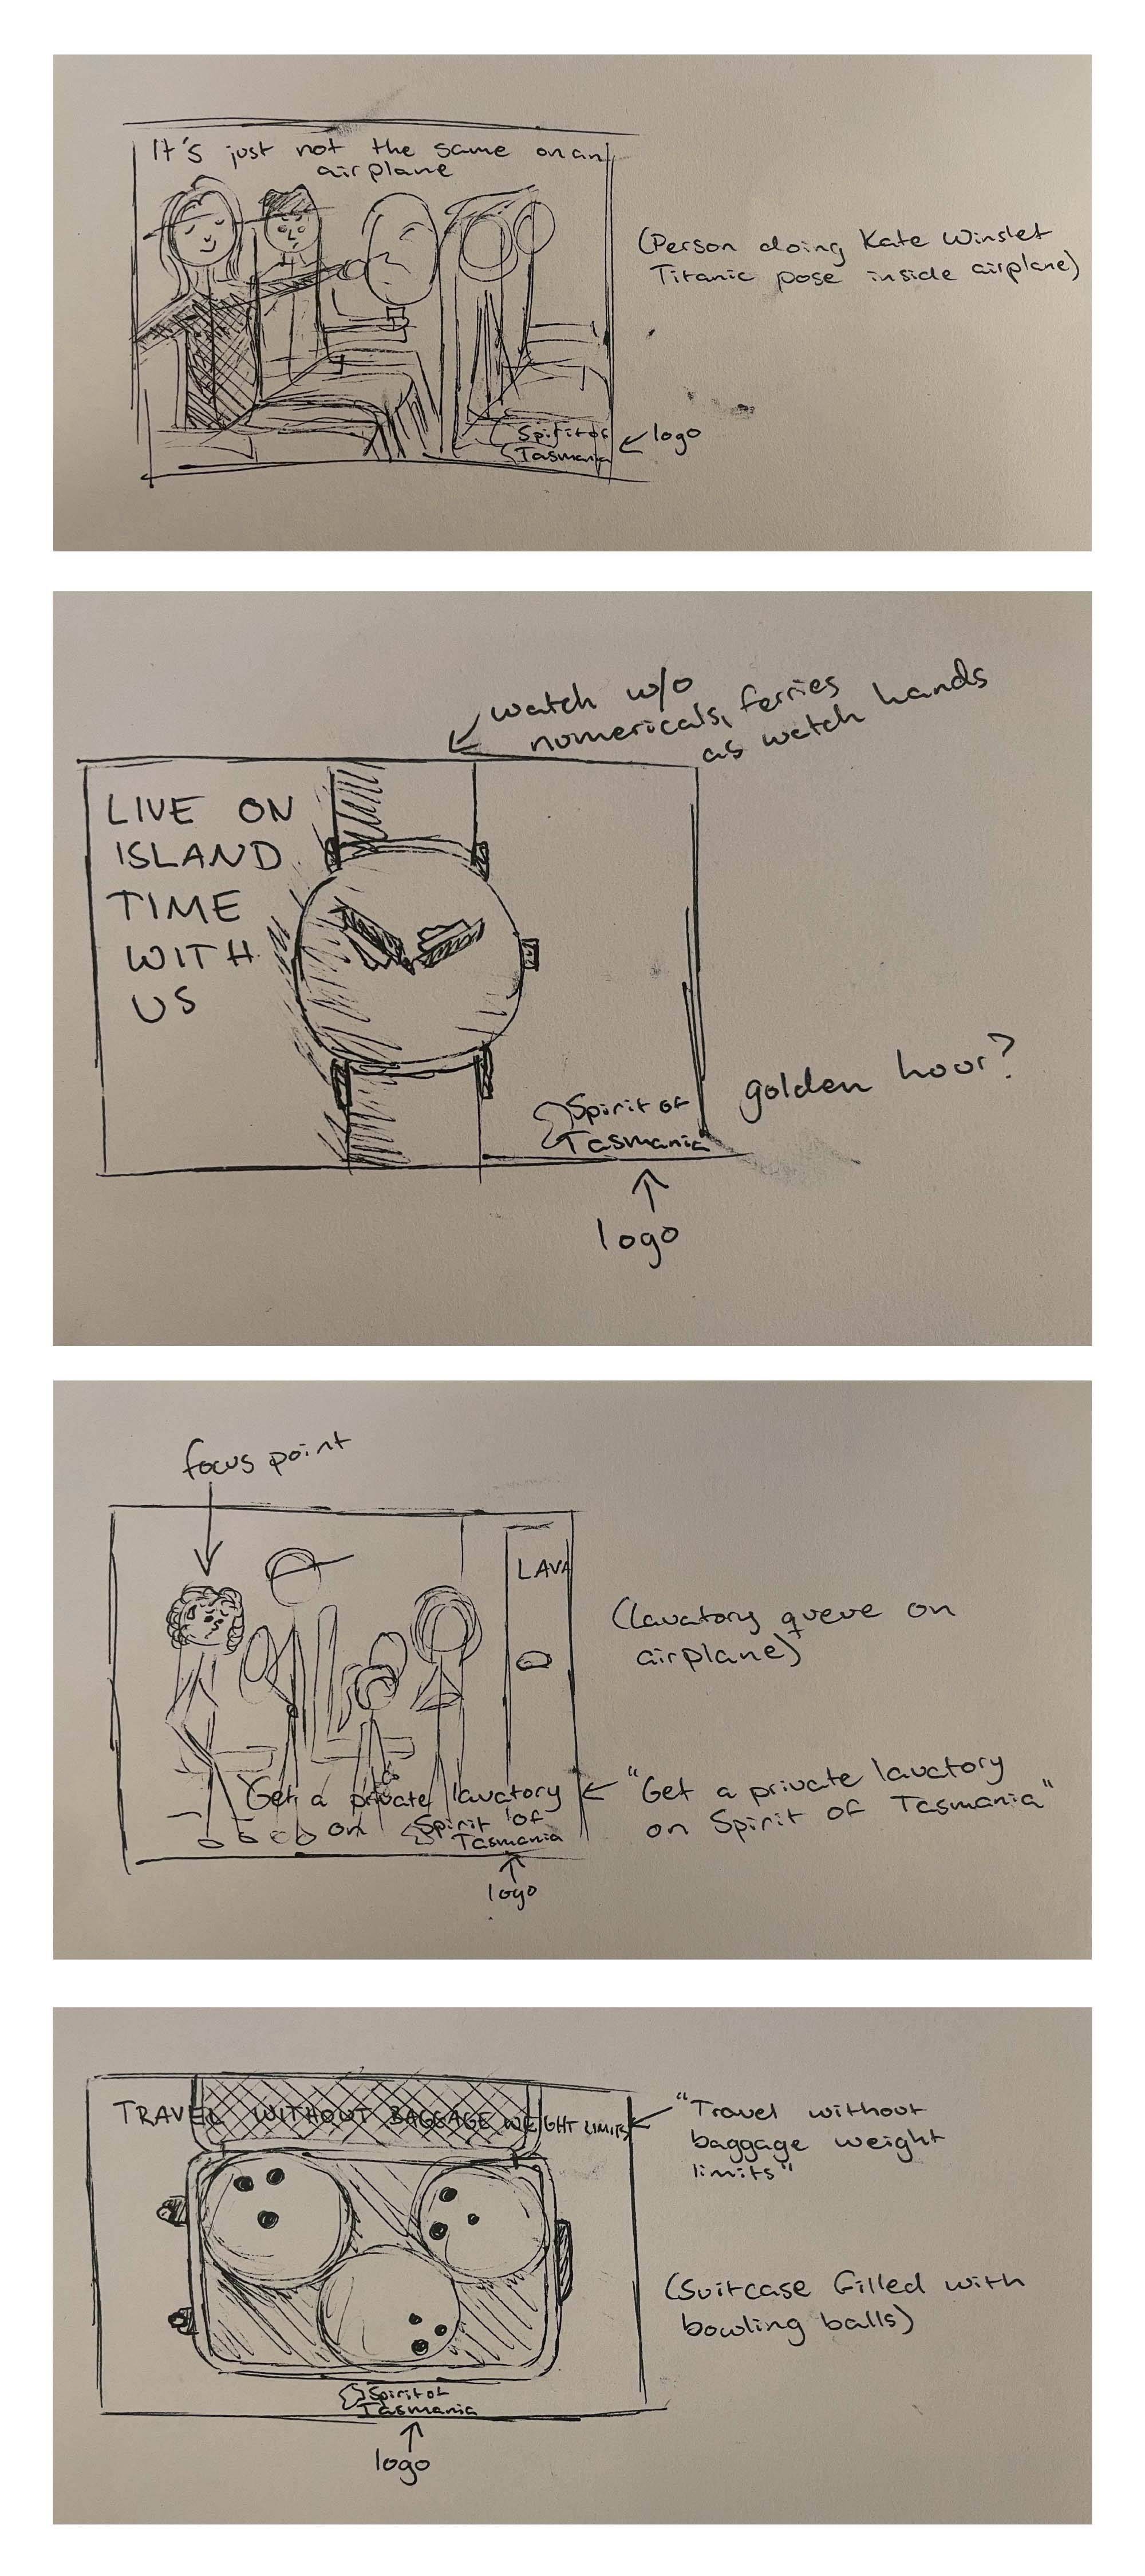 It's just not the same on an
airplane
(Person doing Kate Winslet
Titanic pose inside airplane)
Spirit of
Tasmania
logo
watch w/o
numericals, ferries
as watch hands
LIVE ON
ISLAND
TIME
WITH
US
golden hour?
Spirit of
Tasmania
logo
focus point
LAVA
(lavatory queue on
airplane)
Get a private lavatory
on Spirit of
Tasmania
"Get a private lavatory
on Spirit of Tasmania"
logo
TRAVEL WITHOUT BAGGAGE WEIGHT LIMITS
"Travel without
baggage weight
limits"
(Suitcase filled with
bowling balls)
Spirit of
Tasmania
logo